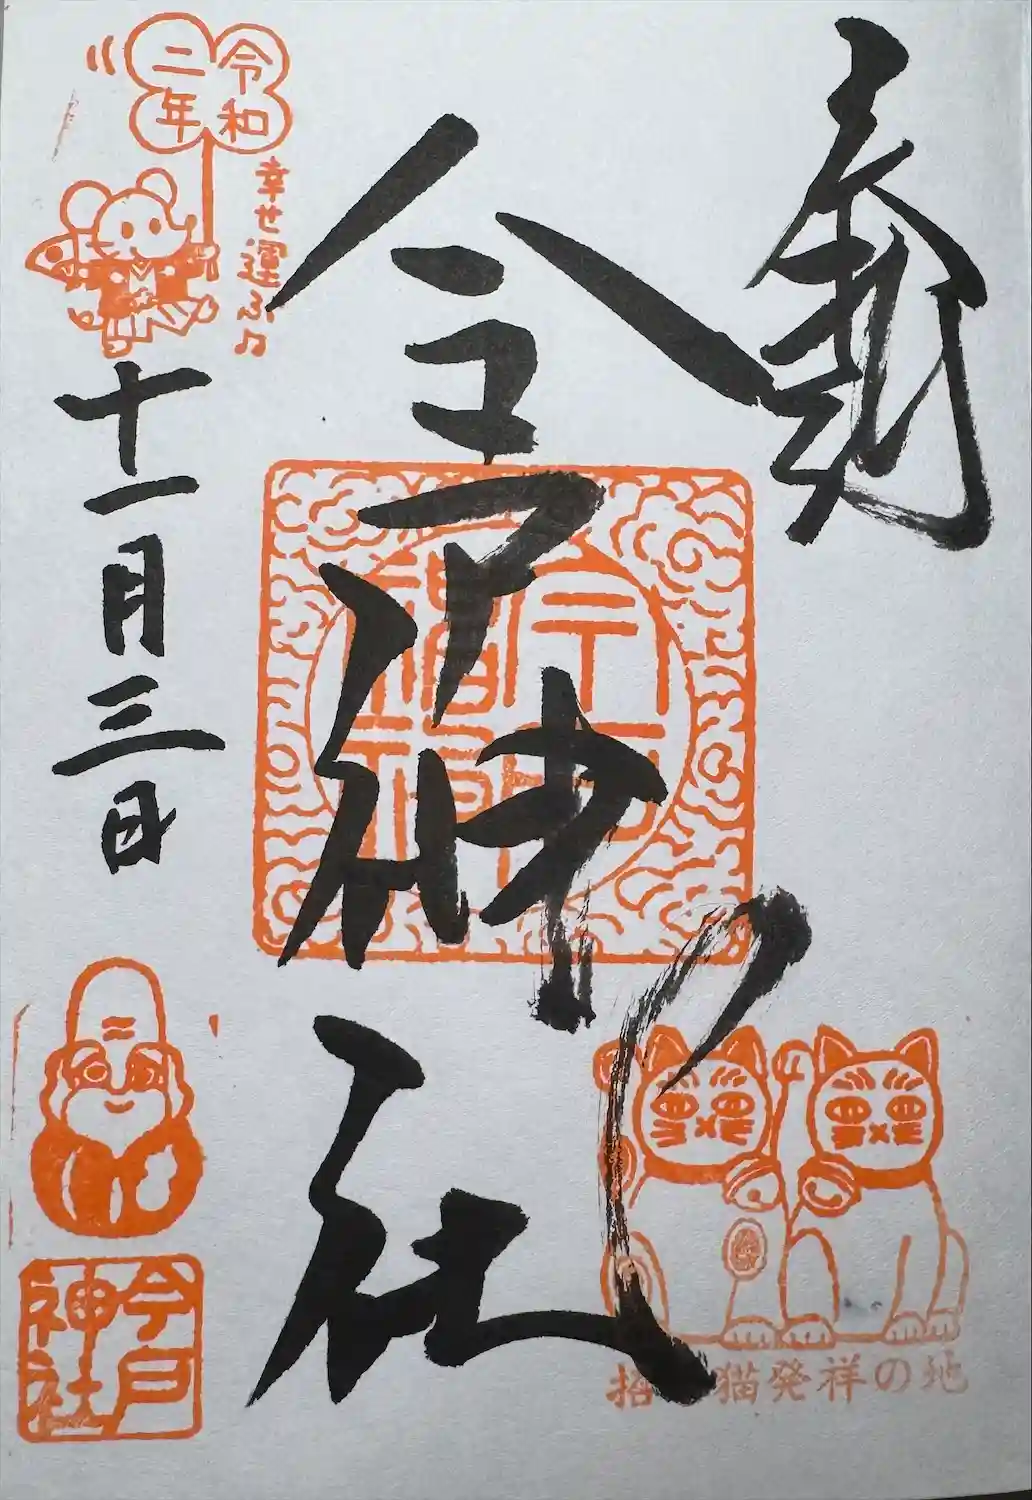 奉拝
今戸神社
招き猫発祥の地
令和
二年
幸せ運ぶ♫
十一月三日
今戸
神社